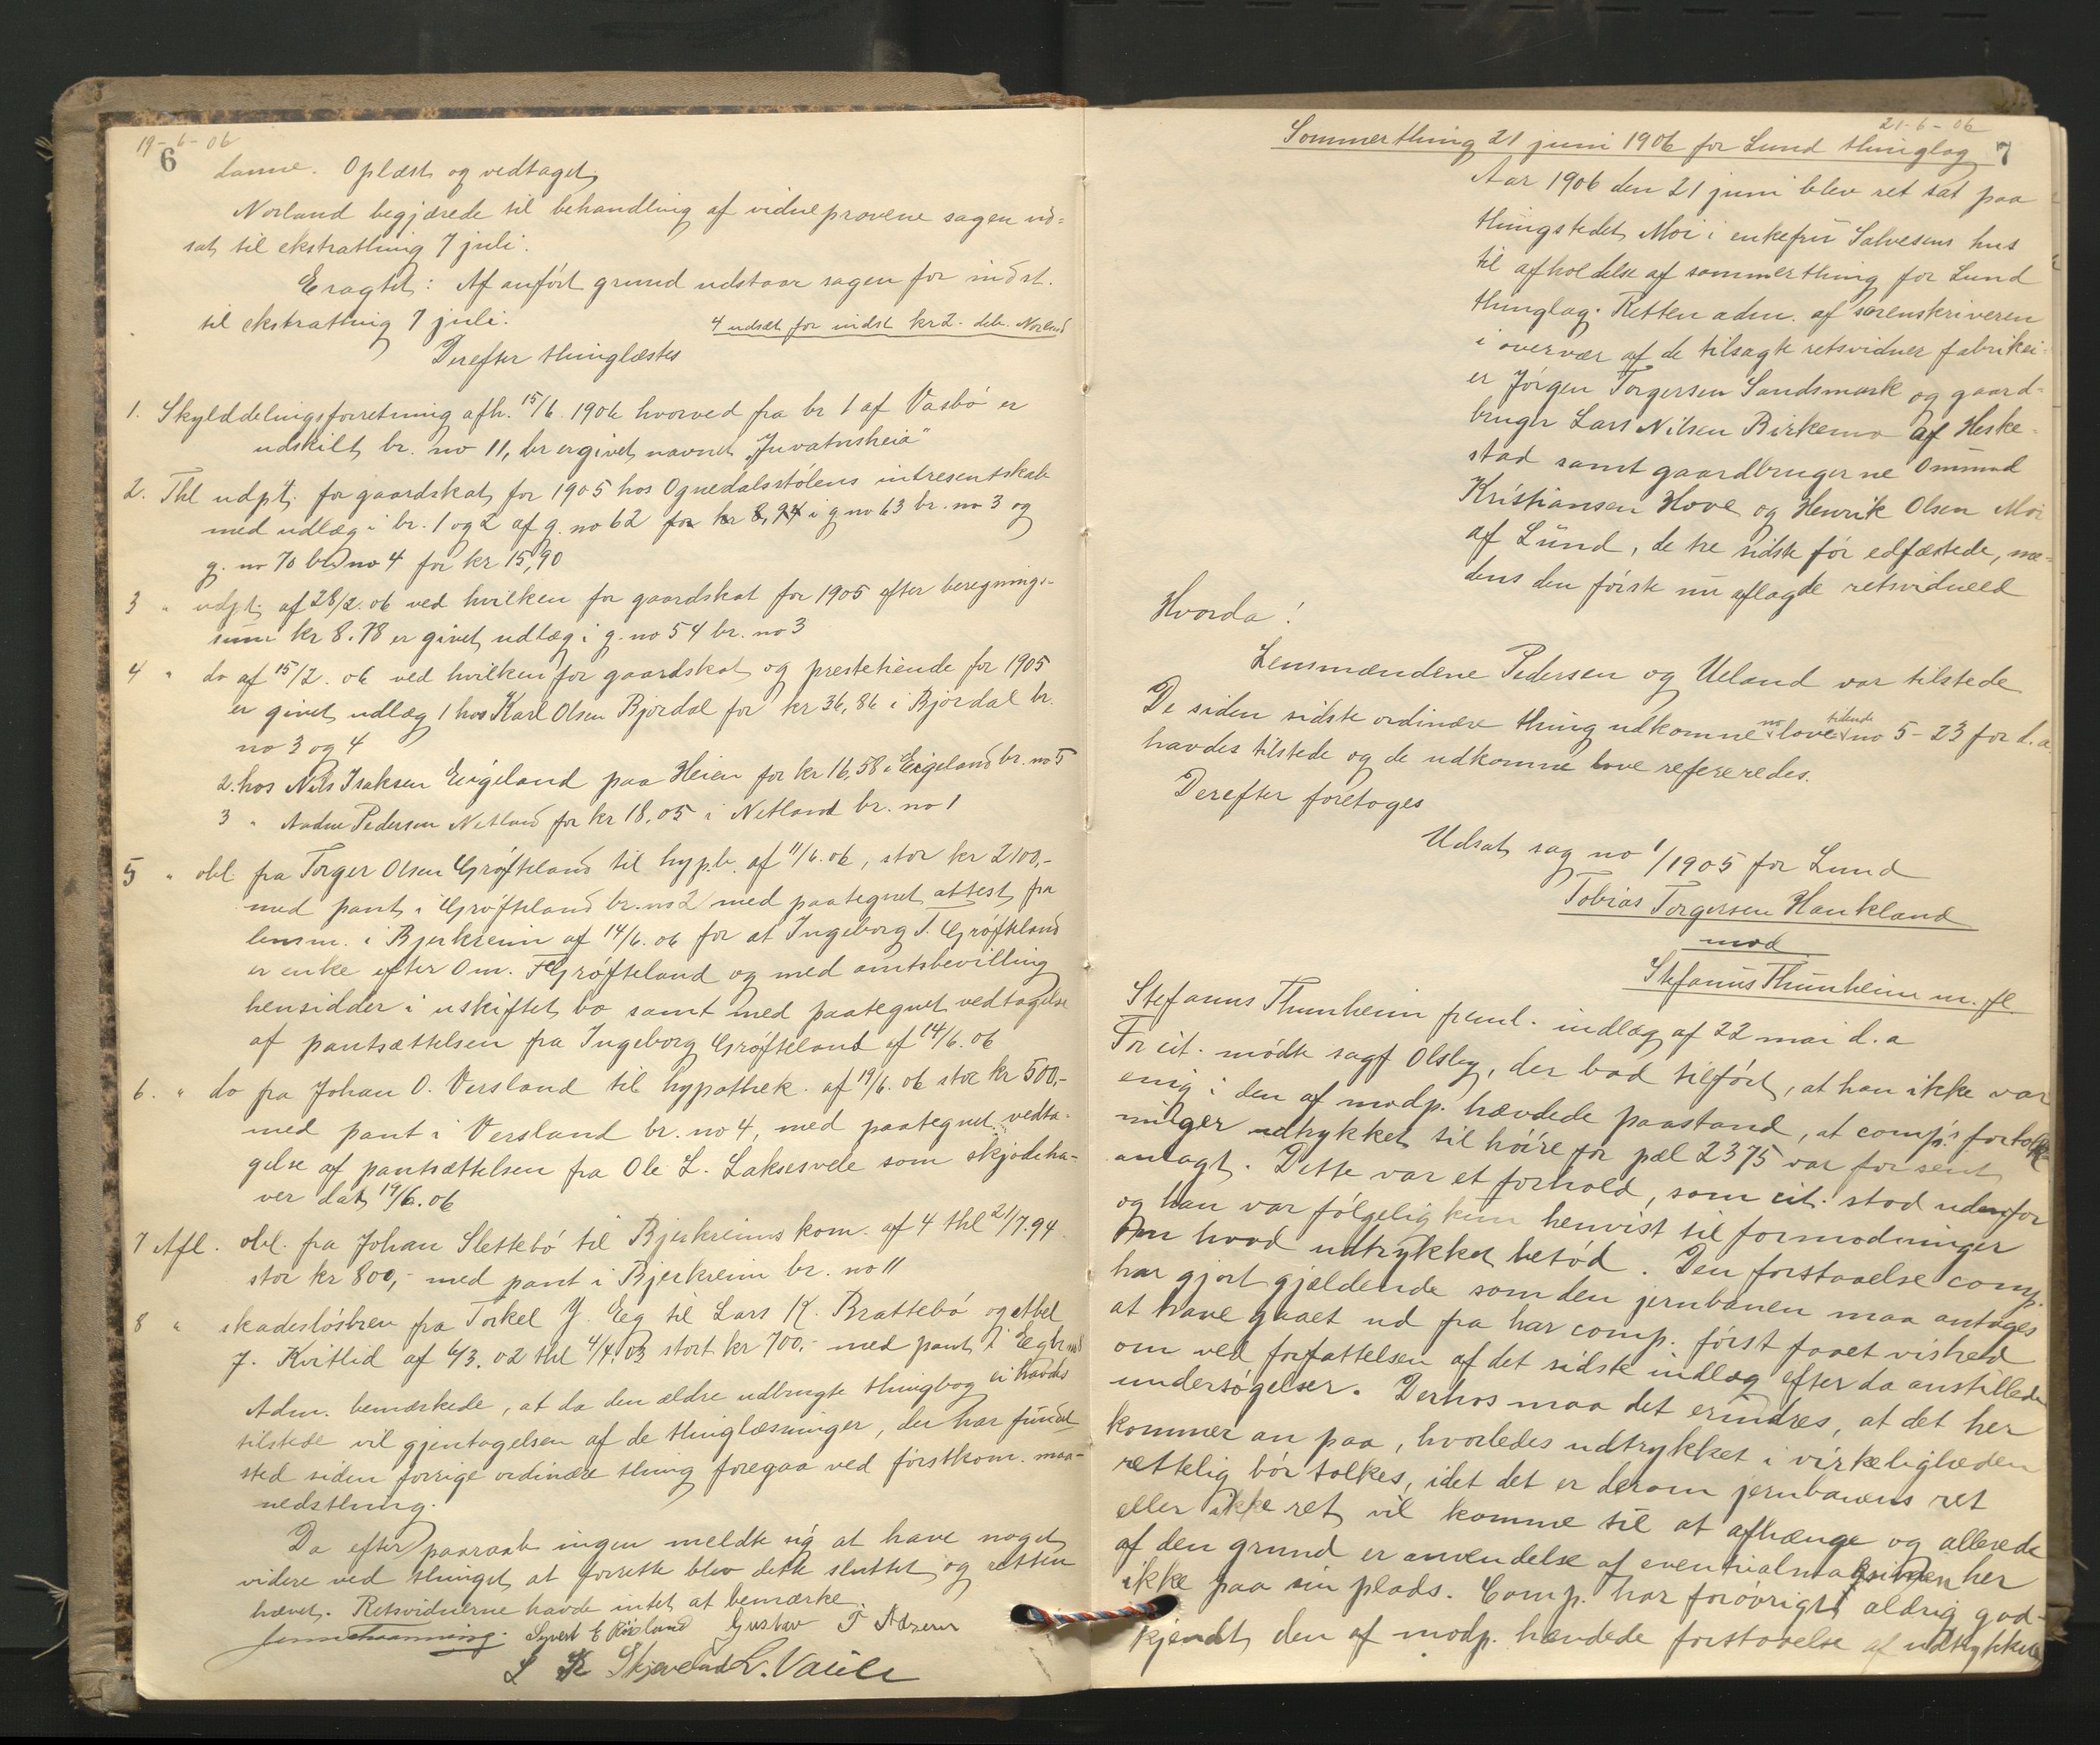 19-6-06
6
danne. Oplæst og vedtaget
Norland begjærede til behandling af vidneprovene sagen ud-
sat til ekstrathing 7 juli.
Eragtet: Af anført grund udstaar sagen for indst.
til ekstrathing 7 juli.
4 udsæt for indst kr 2. deb. Norland
Derefter thinglæstes
1. Skylddelingsforretning afh. 15/6 1906 hvorved fra br 1 af Vasbø er
udskilt br. no 11, br er givet navnet „Juvatnsheia"
2. Thl udpt. for gaardskat for 1905 hos Ognedalsstølens intresentskab
med udlæg i br. 1 og 2 af g. no 62 for kr 8,94 i g no 63 br. no 3 og
g. no 70 br no 4 for kr 15,90
3 " udpt. af 28/2.06 ved hvilken for gaardskat for 1905 efter beregnings-
sum kr 8.78 er givet udlæg i g. no 54 br. no 3
4 " do af 15/2.06 ved hvilken for gaardskat og prestetiende for 1905
er givet udlæg 1 hos Karl Olsen Bjørdal for kr 36,86 i Bjørdal br.
no 3 og 4
2. hos Nils Isaksen Eigeland paa Heien for kr 16,58 i Eigeland br. no 5
3 " Andne Pedersen Netland for kr 18.05 i Netland br. no 1
5 " obl fra Torger Olsen Grøfteland til hypb. af 11/6.06, stor kr 2100,-
med pant i Grøfteland br. no 2 med paategnet attest fra
lensm. i Bjerkreim af 14/6.06 for at Ingeborg S. Grøfteland
er enke efter Om. T Grøfteland og med amtsbevilling
hensidder i uskiftet bo samt med paategnet vedtagelse
af pantsættelsen fra Ingeborg Grøfteland af 14/6.06
6. " do fra Johan O. Versland til hypothek. af 19/6.06 stor kr 500,-
med pant i Versland br. no 4, med paategnet vedta-
gelse af pantsættelsen fra Ole L. Laksesvele som skjødeha-
ver dat 19/6.06
7 Afl. obl. fra Johan Slettebø til Bjerkreims kom. af 4 thl 21/7.94
stor kr 800,- med pant i Bjerkreim br. no 11
8 " skadesløsbrev fra Torkel J. Eeg til Lars K. Brattebø og Abel
J. Kvitlid af 4/3.02 thl 4/4.03 stort kr 700.- med pant i Eeg br no
Adm. bemærkede, at da den ældre udbrugte thingbog ei havdes
tilstede vil gjentagelsen af de thinglæsninger, der har fundet
sted siden forrige ordinære thing foregaa ved førstkom. maa-
nedsthing.
Da efter paaraab ingen meldte sig at have noget
videre ved thinget at forrette blev dette sluttet og retten
hævet. Retsvidnerne havde intet at bemærke.
Syvert E Røisland Gustav T
L K Skjæveland L.
21-6-06
Sommerthing 21 juni 1906 for Lund thinglag 7
Aar 1906 den 21 juni blev ret sat paa
thingstedet Moi i enkefru Salvesens hus
til afholdelse af sommerthing for Lund
thinglag. Retten adm. af sorenskriveren
i overvær af de tilsagte retsvidner fabrikei-
er Jørgen Torgersen Sandsmark og gaard-
bruger Lars Nilsen Birkemo af Heske-
stad samt gaardbrugerne Ommund
Kristiansen Hove og Henrik Olsen Moi
af Lund, de tre sidste før edfæstede, me-
dens den første nu aflagde retsvidneed
Hvorda!
Lensmændene Pedersen og Ueland var tilstede
De siden sidste ordinære thing udkomne no lovetidende no 5-23 for d.a
havdes tilstede og de udkomne love refereredes.
Derefter foretoges
Udsat sag no 1/1905 for Lund
Tobias Torgersen Haukland
mod
Stefanus Thunheim m. fl
Stefanus Thunheim freml. indlæg af 22 mai d.a
For cit. mødte sagf Olsby, der bad tilført, at han ikke var
enig i den af modp. hævdede paastand, at comp.s fortolk-
ninger udtrykket til høire for pæl 2375 var for sent
antagt. Dette var et forhold, som cit. stod udenfor
og han var følgelig kun henvist til formodninger
om hvad udtrykket betød. Den forstaaelse comp.
har gjort gjældende som den jernbanen maa antages
at have gaaet ud fra har comp. først faaet vished
om ved forfattelsen af det sidste indlæg efter da anstillede
undersøgelser. Derhos maa det erindres, at det her
kommer an paa, hvorledes udtrykket i virkeligheden
rettelig bør tolkes, idet det er derom jernbanens ret
eller ikke ret vil komme til at afhænge og allerede
af den grund er anvendelse af eventualmaksimen her
ikke paa sin plads. Comp. har forøvrigt aldrig god-
kjendt den af modp. hævdede forstaaelse af udtrykket